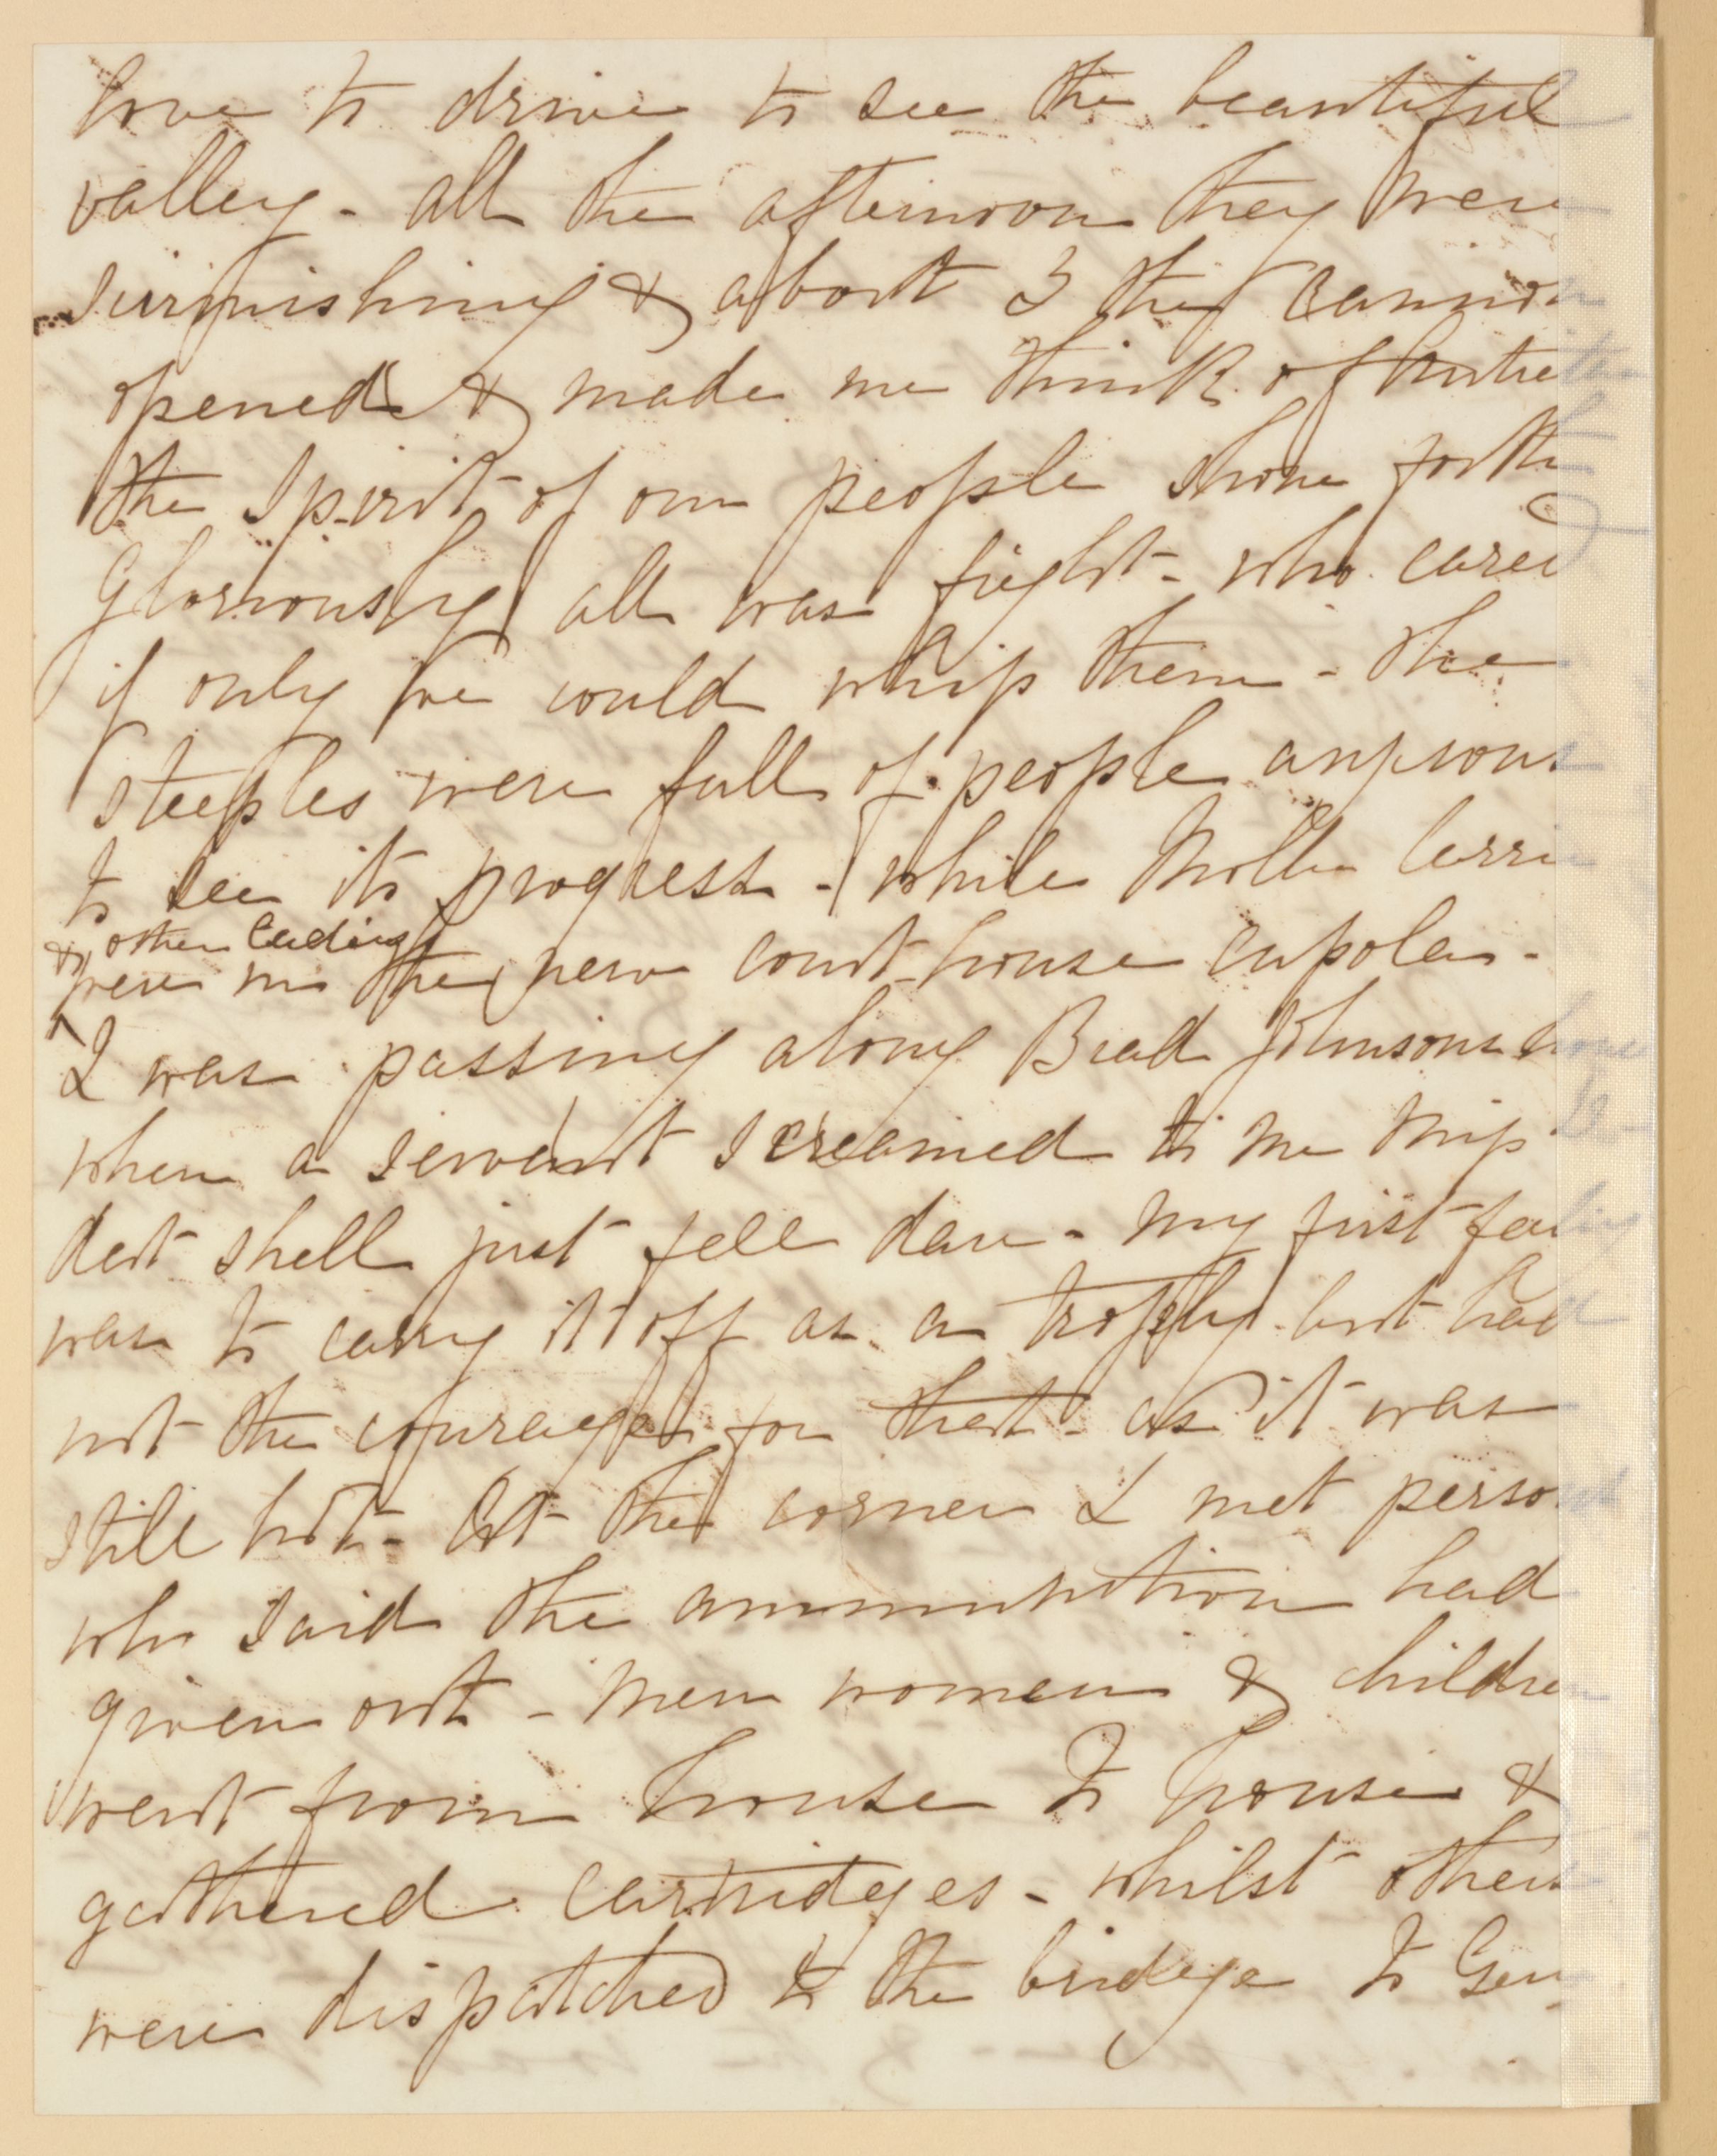 love to drive to see the beautiful
valley - all the afternoon they were
skirmishing & about 3 the cannon
opened & made me think of Antie
the spirit of our people shone forth
gloriously all was fight - who cared
if only we could whip them - the
steeples were full of people anxious
to see its progress - while Mollie
& other ladies
were in the new court house cupola -
I was passing along Brad Johnsons house
when a servant screamed to me Miss
dat shell just fell dare - my first feeling
was to carry it off as a trophy but had
not the courage for that - as it was
still hot - At the corner I met persons
who said the ammunition had
given out - men women & children
went from house to house &
gathered cartridges - whilst others
were dispatched to the bridge to Gen